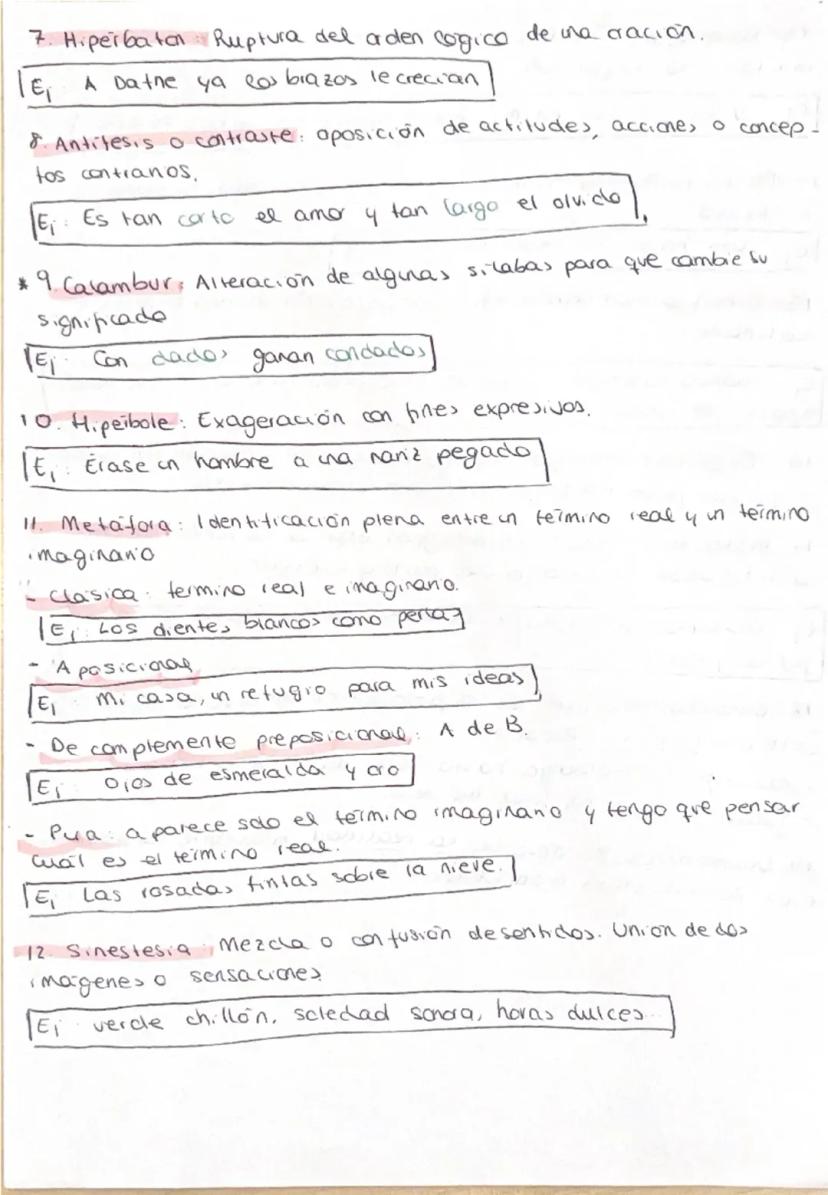 7. Hiperbaton: Ruptura del orden lógico de una oración.
Ej A Dafne ya los brazos le crecían
8. Antítesis o contraste: oposición de actitudes, acciones o concep-
tos contrarios.
Ej: Es tan corto el amor y tan largo el olvido
* 9. Calambur: Alteración de algunas sílabas para que cambie su
significado
Ej: Con dados ganan condados
10. Hipérbole: Exageración con fines expresivos.
Ej: Erase un hombre a una nariz pegado
11. Metáfora: Identificación plena entre un término real y un término
imaginario
- Clásica: termino real e imaginario.
Ej: Los dientes blancos como perlas
- Aposicional
Ej Mi casa, un refugio para mis ideas
- De complemento preposicional: A de B.
Ej: Ojos de esmeralda y oro
- Pura: aparece solo el término imaginario y tengo que pensar
cuál es el término real.
Ej Las rosadas tintas sobre la nieve.
12. Sinestesia: Mezcla o confusión de sentidos. Unión de dos
imágenes o sensaciones
Ej: verde chillón, soledad sonora, horas dulces...